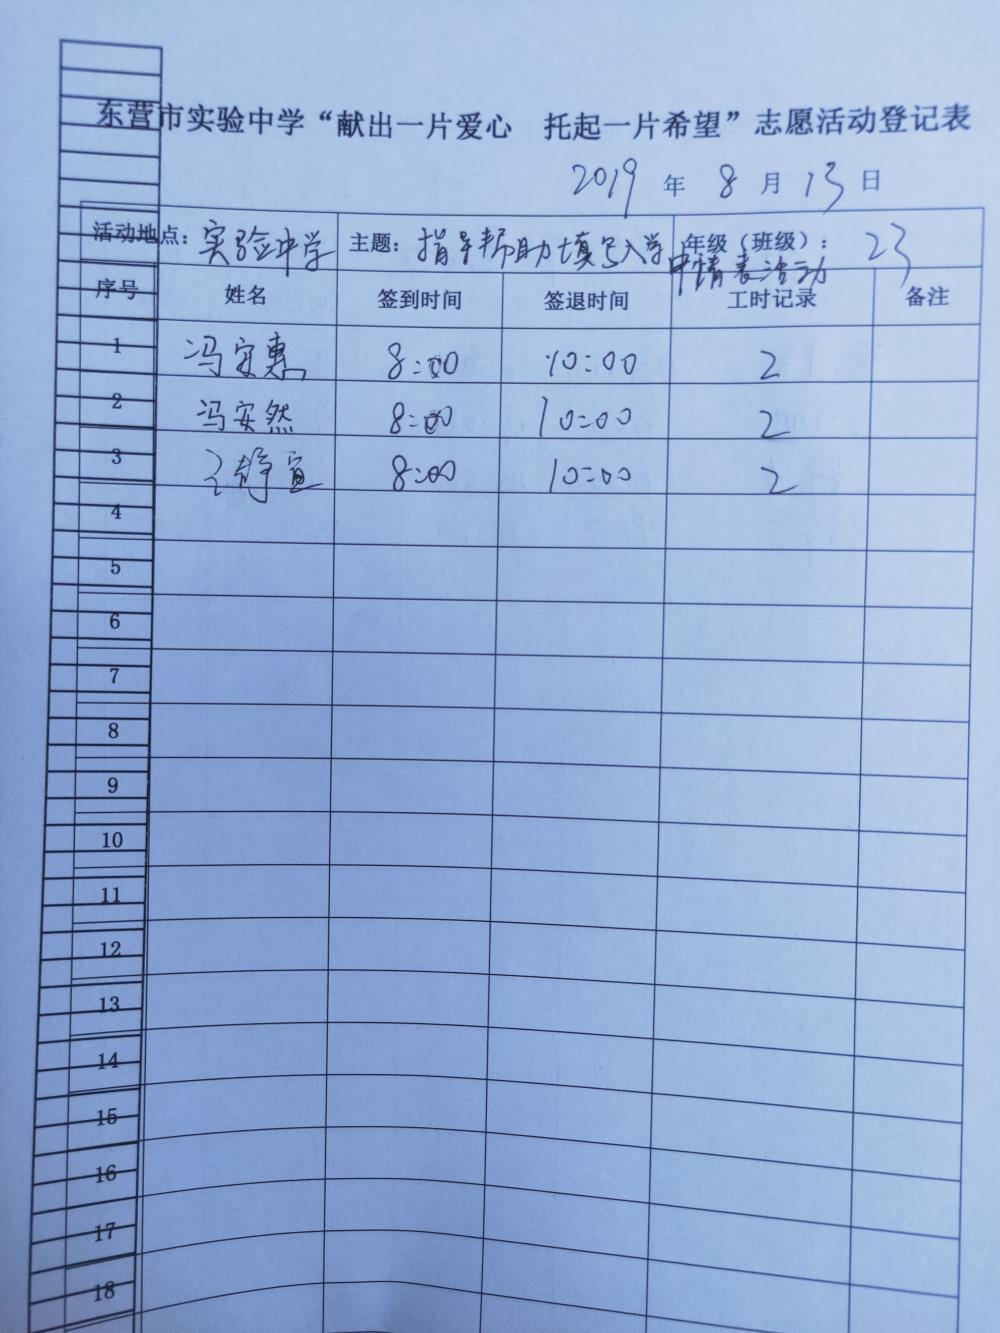 东营市实验中学“献出一片爱心 托起一片希望”志愿活动登记表
2019 年 8 月 13 日
活动地点：实验中学 主题：指导帮助填写入学申请表活动 年级（班级）：23
序号 姓名 签到时间 签退时间 工时记录 备注
1 冯安惠 8:00 10:00 2
2 冯安然 8:00 10:00 2
3 王静宜 8:00 10:00 2
4
5
6
7
8
9
10
11
12
13
14
15
16
17
18